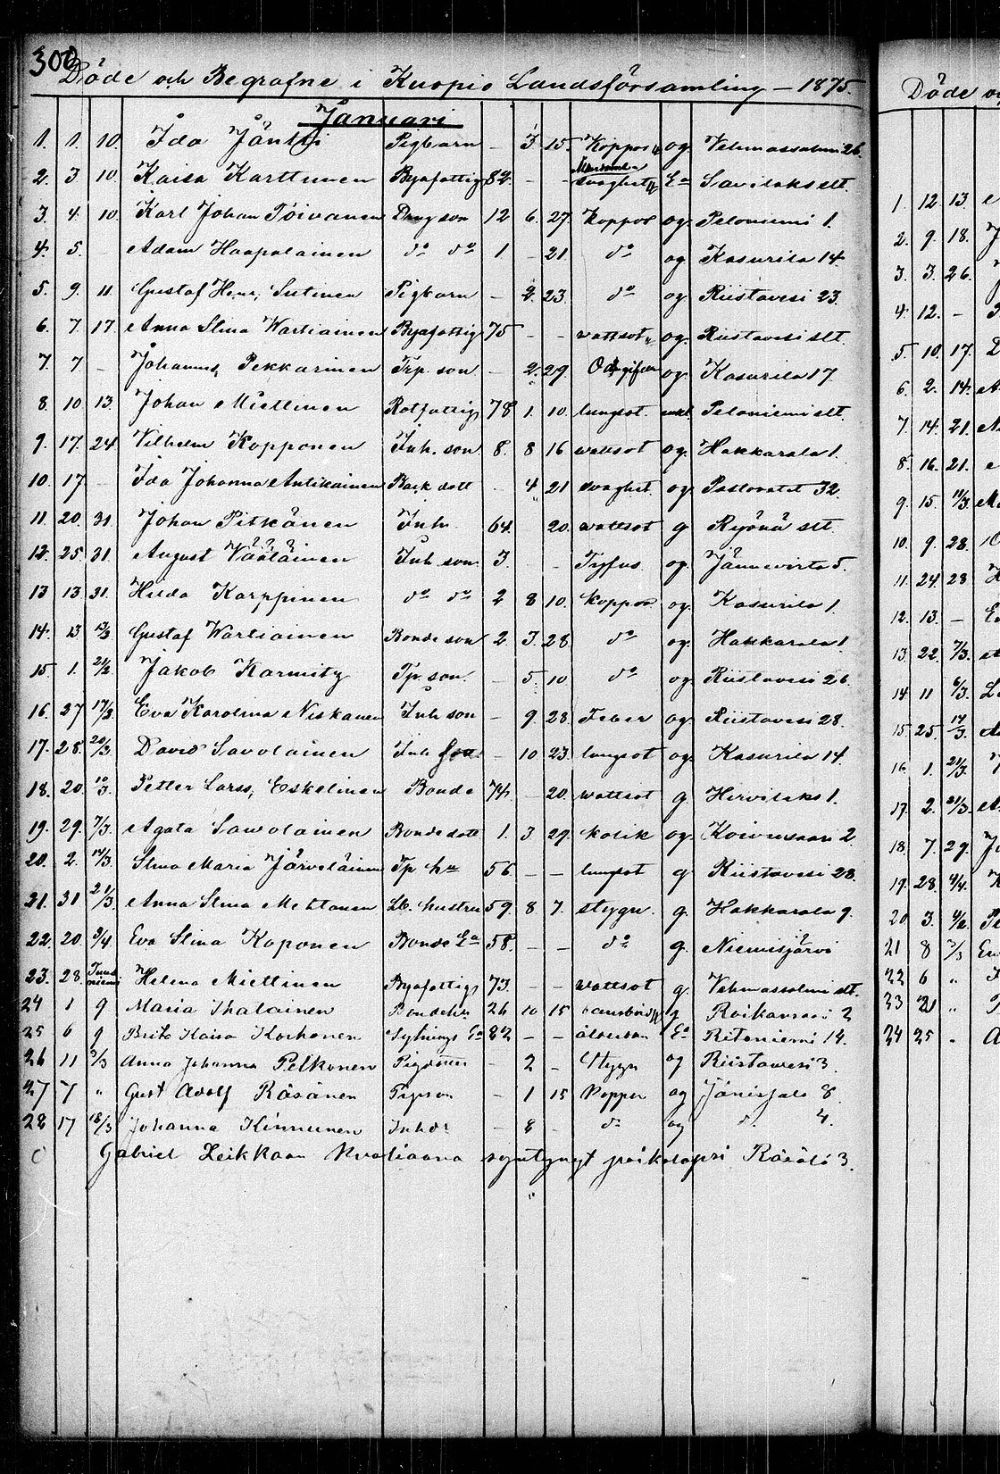 300
Döde och Begrafne i Kuopio Landsförsamling – 1875.
Januari
1. 1. 10. Ida Jäntti Pigbarn – 3 15. Koppor og Vehmassalmi 26.
2. 3. 10. Kaisa Karttunen Byafattig 82. – – svaghet Ea Savilaks slt.
3. 4. 10. Karl Johan Toivanen Dräng son 12 6. 27. Koppor og Peloniemi 1.
4. 5. – Adam Haapalainen do do 1. – 21 do og Kasurila 14.
5. 9. 11. Gustaf Henr. Sutinen Pigbarn – 2. 23. do og Riistavesi 23.
6. 7. 17. Anna Stina Wartiainen Byafattig 75 – – wattsot og. Riistavesi slt.
7. 7 – Johannes Pekkarinen Trp. son – 2. 29. og Kasurila 17.
8. 10. 13. Johan Miettinen Rotfattig 78 1. 10. lungsot. enkl. Peloniemi slt.
9. 17. 24 Vilhelm Kopponen Inh. son 8. 8 16 wattsot og Hakkarala 1.
10. 17. – Ida Johanna Antikainen Back dott – 4 21 svaghet og Pastoratet 32.
11. 20. 31. Johan Pitkänen Inh. 64. 20. wattsot g Ryönä slt.
12. 25 31. August Väätäinen Inh son 3. – – Tyfus og. Jännevirta 5.
13 13. 31. Hilda Karppinen do do 2 8 10. Koppor og. Kasurila 1.
14. 13 Gustaf Wartiainen Bonde son 2 3. 28 do og Hakkarala 1.
15 1. Jakob Karmitz Tp. son. – 5. 10 do og Riistavesi 26.
16. 27 17/3 Eva Karolina Niskanen Inh son – 9. 28. Feber og Riistavesi 28.
17. 28. 20/3 David Savolainen Inh son – 10 23. lungsot og Kasurila 14.
18. 20. 10/3. Petter Larss. Eskelinen Bonde 74. 20. wattsot g Hirvilaks 1.
19. 29. 7/3. Agata Sawolainen Bonde dott 1. 3 29. kolik og. Koivusaari 2
20. 2. 14/3. Stina Maria Järveläinen Tp hu 56 – – lungsot g Riistavesi 28.
21. 31 21/3. Anna Stina Mehtonen Lb. hustru 59 8 7. stygn. g. Hakkarala 9.
22. 20. 9/4 Eva Stina Koponen Bonde Ea 58. – – do g. Niemisjärvi
23. 28. Helena Miettinen Byafattig 73. – – wattsot g. Vehmassalmi slt.
24 1 9 Maria Ihalainen Bondehu. 26 10 15 barnsbörd g Roikansaari 2
25 6 9 Brita Kaisa Korhonen Sytnings Ea 82 – – ålderdom Ea Ritoniemi 14.
26 11 5/3 Anna Johanna Pelkonen – 2 – Stygn og Riistavesi 3
27 7 " Gust Adolf Räsänen Tpson – 1 15 Koppor og Jänissalo 8.
28 17 18/3 Johanna Kinnunen Inhdr – 8 do og d. 4.
Gabriel Heikkaan
Räsälä 3.
Döde
1. 12. 13.
2. 9. 18.
3. 3. 26.
4. 12. –
5. 10. 17.
6. 2. 14.
7. 14. 21.
8. 16. 21.
9. 15.
10. 9. 28.
11. 24 28
12. 13. –
13. 22. 7/3.
14 11 6/3.
15. 25. 14/3.
16. 1. 21/3.
17. 2. 21/3.
18. 7. 29.
19. 28. 4/4.
20 3.
21 8
22 6 "
23 21 "
24 25 "